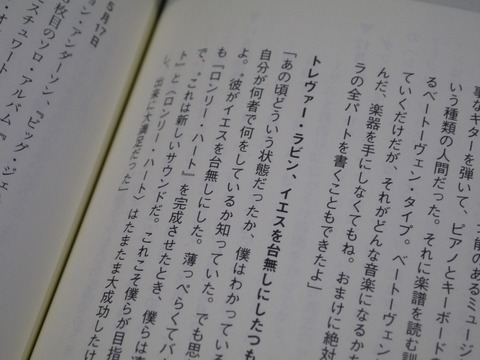 能のあるミュージ
事なギターを弾いて、ピアノとキーボード
いう種類の人間だった。それに楽譜を読む訓
るベートーヴェン・タイプ。ベートーヴェン
ていくだけだが、それがどんな音楽になるか
んだ、楽器を手にしなくてもね。おまけに絶対
ラの全パートを書くこともできたよ」
トレヴァー・ラビン、イエスを台無しにしたつも
「あの頃どういう状態だったか、僕はわかっている
自分が何者で何をしているか知っていた。でも思
よ。〝彼がイエスを台無しにした。薄っぺらくてバ
も『ロンリー・ハート』を完成させたとき、僕らは
で、〝これは新しいサウンドだ。これこそ僕らが目指
ト』と〈ロンリー・ハート〉はたまたま大成功したけ
し、出来に大満足だった」
5月17日
ョン・アンダーソン、『ビッグ・ジェ
枚目のソロ・アルバム『
スチュワート・